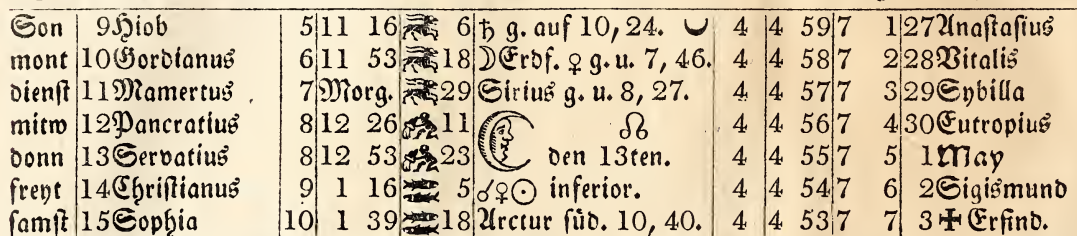 Son 9 Hiob 5 11 16 6 ♄ g. auf 10, 24. 4 4 59 7 1 27 Anastasius
mont 10 Gordianus 6 11 53 18 ☽ Erdf. ♀ g. u. 7, 46. 4 4 58 7 2 28 Vitalis
dienst 11 Mamertus 7 Morg. 29 Sirius g. u. 8, 27. 4 4 57 7 3 29 Sybilla
mitw 12 Pancratius 8 12 26 11 ☊ 4 4 56 7 4 30 Eutropius
donn 13 Servatius 8 12 53 23 den 13ten. 4 4 55 7 5 1 May
freyt 14 Christianus 9 1 16 5 ☌ ♀ ☉ inferior. 4 4 54 7 6 2 Sigismund
samst 15 Sophia 10 1 39 18 Arctur süd. 10, 40. 4 4 53 7 7 3 ✠ Erfind.